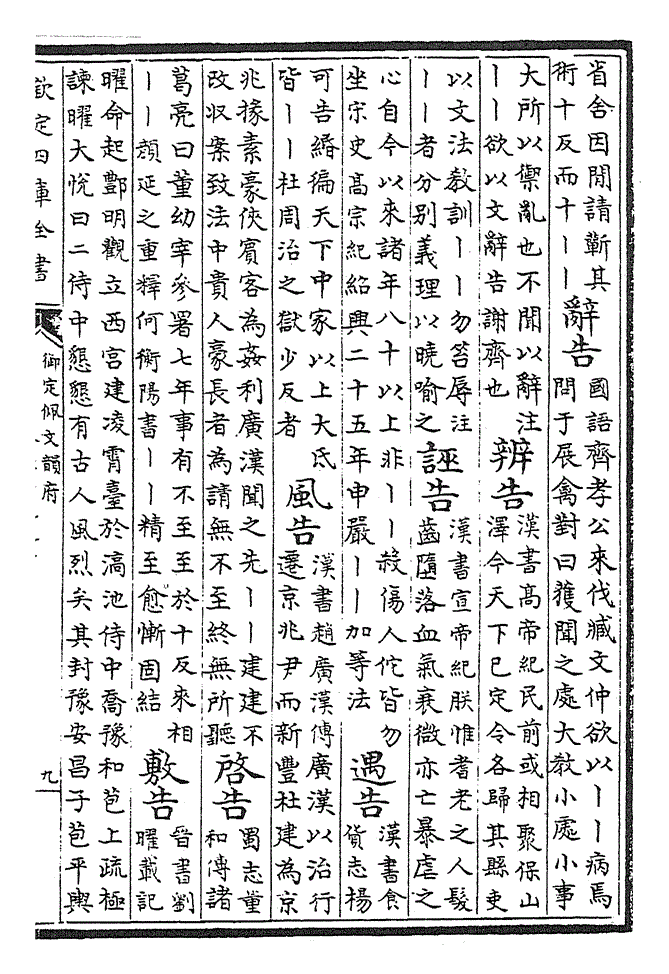 省舍因閒請蘄其
術十反而十丨丨
辭告
國語齊孝公來伐臧文仲欲以丨丨病焉
問于展禽對曰獲聞之處大教小處小事
大所以禦亂也不聞以辭注
丨丨欲以文辭告謝齊也
辨告
漢書高帝紀民前或相聚保山
澤今天下已定令各歸其縣吏
以文法教訓丨丨勿笞辱注
丨丨者分別義理以曉喻之
誣告
漢書宣帝紀朕惟耆老之人髮
齒墮落血氣衰微亦亡暴虐之
心自今以來諸年八十以上非丨丨殺傷人佗皆勿
坐宋史高宗紀紹興二十五年申嚴丨丨加等法
遇告
漢書食
貨志楊
可告緡徧天下中家以上大氐
皆丨丨杜周治之獄少反者
風告
漢書趙廣漢傳廣漢以治行
遷京兆尹而新豐杜建為京
兆掾素豪俠賓客為姦利廣漢聞之先丨丨建建不
改收案致法中貴人豪長者為請無不至終無所聽
啓告
蜀志董
和傳諸
葛亮曰董幼宰參署七年事有不至至於十反來相
丨丨顏延之重釋何衡陽書丨丨精至愈慚固結
敷告
晉書劉
曜載記
曜命起酆明觀立西宮建凌霄臺於滈池侍中喬豫和苞上疏極
諫曜大悅曰二侍中懇懇有古人風烈矣其封豫安昌子苞平輿
欽定四庫全書
御定佩文韻府
九